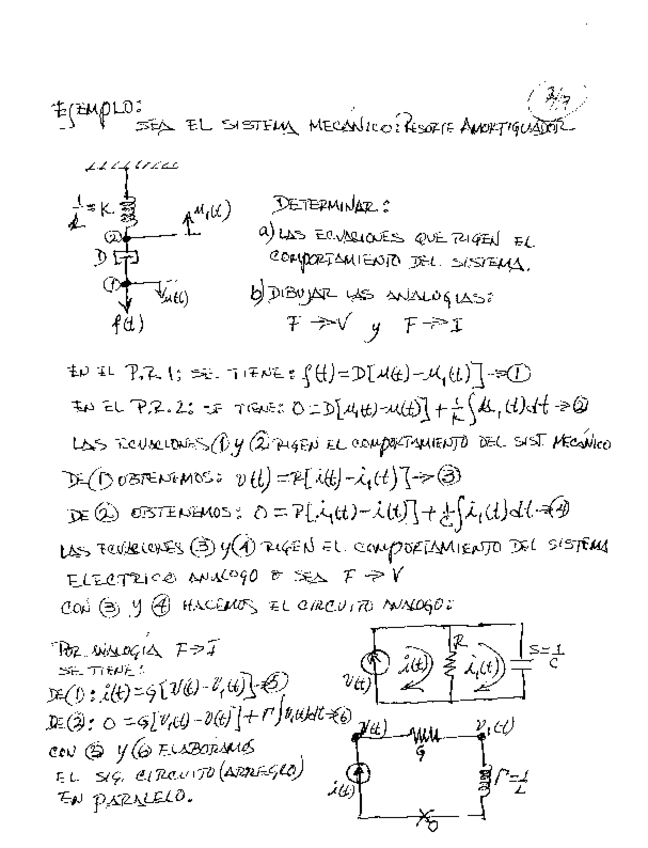 3/7
EJEMPLO:
SEA EL SISTEMA MECÁNICO: RESORTE AMORTIGUADOR
1/k = K
u₁(t)
②
D
①
u(t)
f(t)
DETERMINAR:
a) LAS ECUACIONES QUE RIGEN EL
COMPORTAMIENTO DEL SISTEMA.
b) DIBUJAR LAS ANALOGIAS:
F → V y F → I
EN EL P.R.1; SE TIENE: f(t) = D[u(t) - u₁(t)] → ①
EN EL P.R.2: SE TIENE: 0 = D[u₁(t) - u(t)] + 1/K ∫u₁(t)dt → ②
LAS ECUACIONES (1) y (2) RIGEN EL COMPORTAMIENTO DEL SIST. MECÁNICO
DE (1) OBTENEMOS: v(t) = R[i(t) - i₁(t)] → ③
DE ② OBTENEMOS: 0 = R[i₁(t) - i(t)] + 1/C ∫i₁(t)dt → ④
LAS ECUACIONES ③ y ④ RIGEN EL COMPORTAMIENTO DEL SISTEMA
ELECTRICO ANALOGO O SEA F → V
CON ③ Y ④ HACEMOS EL CIRCUITO ANALOGO:
POR ANALOGÍA F → I
SE TIENE:
DE (1): i(t) = G[v(t) - v₁(t)] → ⑤
DE (2): 0 = G[v₁(t) - v(t)] + Γ∫v₁(t)dt → ⑥
CON ⑤ Y ⑥ ELABORAMOS
EL SIG. CIRCUITO (ARREGLO)
EN PARALELO.
v(t)
i(t)
R
i₁(t)
S = 1/C
v(t)
G
v₁(t)
i(t)
Γ = 1/L
0